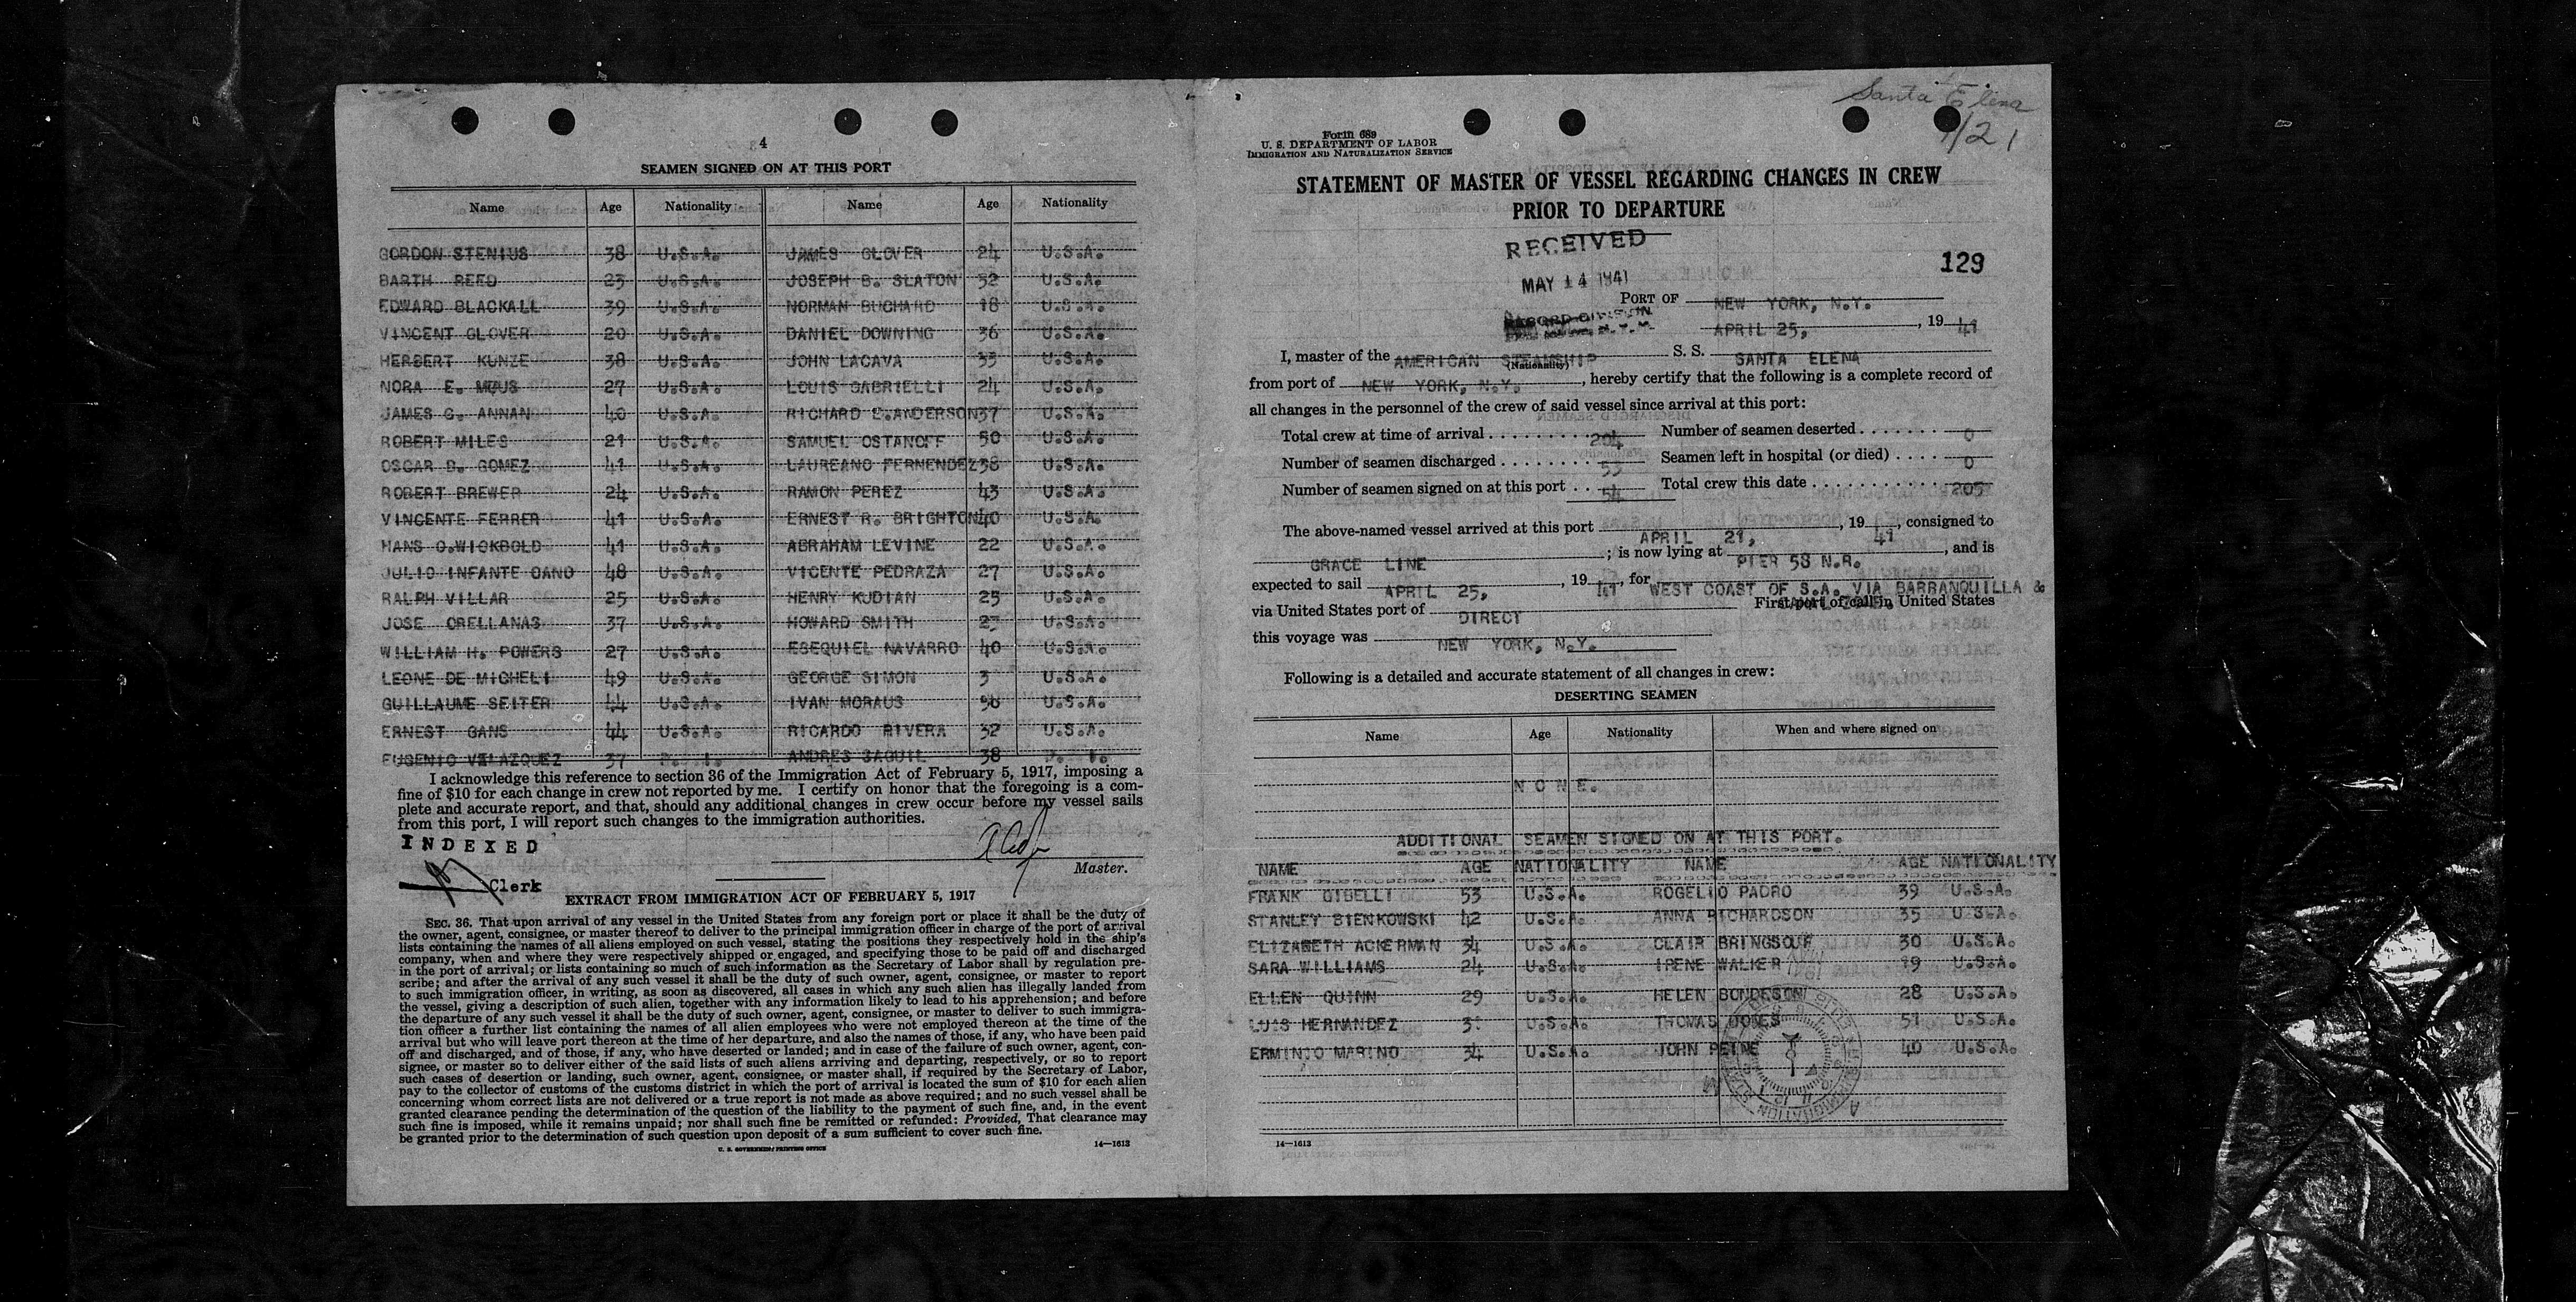 4
SEAMEN SIGNED ON AT THIS PORT
Name Age Nationality Name Age Nationality
GORDON STENIUS 38 U.S.A. JAMES GLOVER 24 U.S.A.
BARTH REED 23 U.S.A. JOSEPH B. SLATON 32 U.S.A.
EDWARD BLACKALL 39 U.S.A. NORMAN BUCHARD 18 U.S.A.
VINCENT GLOVER 20 U.S.A. DANIEL DOWNING 36 U.S.A.
HERBERT KUNZE 38 U.S.A. JOHN LACAVA 33 U.S.A.
NORA E. 27 U.S.A. LOUIS GABRIELLI 24 U.S.A.
JAMES G. ANNAN 40 U.S.A. RICHARD E.ANDERSON 37 U.S.A.
ROBERT MILES 21 U.S.A. SAMUEL OSTANOFF 50 U.S.A.
OSCAR D. GOMEZ 41 U.S.A. LAUREANO FERNENDEZ 38 U.S.A.
ROBERT BREWER 24 U.S.A. RAMON PEREZ 43 U.S.A.
VINCENTE FERRER 41 U.S.A. ERNEST R. BRIGHTON 40 U.S.A.
HANS O.WICKBOLD 41 U.S.A. ABRAHAM LEVINE 22 U.S.A.
JULIO INFANTE CANO 48 U.S.A. VICENTE PEDRAZA 27 U.S.A.
RALPH VILLAR 25 U.S.A. HENRY KUDIAN 25 U.S.A.
JOSE ORELLANAS 37 U.S.A. HOWARD SMITH 23 U.S.A.
WILLIAM H. POWERS 27 U.S.A. ESEQUIEL NAVARRO 40 U.S.A.
LEONE DE MICHELI 49 U.S.A. GEORGE SIMON 3 U.S.A.
GUILLAUME SEITER 44 U.S.A. IVAN MORAUS U.S.A.
ERNEST GANS 44 U.S.A. RICARDO RIVERA 32 U.S.A.
EUGENIO VELAZQUEZ 37 P. I. ANDRES SAGUIL 38 P. I.
I acknowledge this reference to section 36 of the Immigration Act of February 5, 1917, imposing a
fine of $10 for each change in crew not reported by me. I certify on honor that the foregoing is a com-
plete and accurate report, and that, should any additional changes in crew occur before my vessel sails
from this port, I will report such changes to the immigration authorities.
INDEXED
Master.
Clerk
EXTRACT FROM IMMIGRATION ACT OF FEBRUARY 5, 1917
SEC. 36. That upon arrival of any vessel in the United States from any foreign port or place it shall be the duty of
the owner, agent, consignee, or master thereof to deliver to the principal immigration officer in charge of the port of arrival
lists containing the names of all aliens employed on such vessel, stating the positions they respectively hold in the ship's
company, when and where they were respectively shipped or engaged, and specifying those to be paid off and discharged
in the port of arrival; or lists containing so much of such information as the Secretary of Labor shall by regulation pre-
scribe; and after the arrival of any such vessel it shall be the duty of such owner, agent, consignee, or master to report
to such immigration officer, in writing, as soon as discovered, all cases in which any such alien has illegally landed from
the vessel, giving a description of such alien, together with any information likely to lead to his apprehension; and before
the departure of any such vessel it shall be the duty of such owner, agent, consignee, or master to deliver to such immigra-
tion officer a further list containing the names of all alien employees who were not employed thereon at the time of the
arrival but who will leave port thereon at the time of her departure, and also the names of those, if any, who have been paid
off and discharged, and of those, if any, who have deserted or landed; and in case of the failure of such owner, agent, con-
signee, or master so to deliver either of the said lists of such aliens arriving and departing, respectively, or so to report
such cases of desertion or landing, such owner, agent, consignee, or master shall, if required by the Secretary of Labor,
pay to the collector of customs of the customs district in which the port of arrival is located the sum of $10 for each alien
concerning whom correct lists are not delivered or a true report is not made as above required; and no such vessel shall be
granted clearance pending the determination of the question of the liability to the payment of such fine, and, in the event
such fine is imposed, while it remains unpaid; nor shall such fine be remitted or refunded: Provided, That clearance may
be granted prior to the determination of such question upon deposit of a sum sufficient to cover such fine.
U. S. GOVERNMENT PRINTING OFFICE 14—1613
Santa Elena
4/21
Form 689
U. S. DEPARTMENT OF LABOR
IMMIGRATION AND NATURALIZATION SERVICE
STATEMENT OF MASTER OF VESSEL REGARDING CHANGES IN CREW
PRIOR TO DEPARTURE
RECEIVED
129
MAY 14 1941
PORT OF NEW YORK, N.Y.
RECORD DIVISION
APRIL 25, , 19 41
I, master of the AMERICAN STEAMSHIP S. S. SANTA ELENA
(Nationality)
from port of NEW YORK, N.Y. , hereby certify that the following is a complete record of
all changes in the personnel of the crew of said vessel since arrival at this port:
Total crew at time of arrival 204 Number of seamen deserted 0
Number of seamen discharged 53 Seamen left in hospital (or died) 0
Number of seamen signed on at this port 54 Total crew this date 205
The above-named vessel arrived at this port APRIL 21, , 19 41, consigned to
GRACE LINE ; is now lying at PIER 58 N.R. , and is
expected to sail APRIL 25, , 19 41, for WEST COAST OF S.A. VIA BARRANQUILLA &
via United States port of DIRECT First port of call in United States
this voyage was NEW YORK, N.Y.
Following is a detailed and accurate statement of all changes in crew:
DESERTING SEAMEN
Name Age Nationality When and where signed on
NONE.
ADDITIONAL SEAMEN SIGNED ON AT THIS PORT.
NAME AGE NATIONALITY NAME AGE NATIONALITY
FRANK GIBELLI 53 U.S.A. ROGELIO PADRO 39 U.S.A.
STANLEY BIENKOWSKI 42 U.S.A. ANNA RICHARDSON 35 U.S.A.
ELIZABETH ACKERMAN 34 U.S.A. CLAIR 30 U.S.A.
SARA WILLIAMS 24 U.S.A. IRENE WALKER 19 U.S.A.
ELLEN QUINN 29 U.S.A. HELEN BONDESON 28 U.S.A.
LUIS HERNANDEZ 3 U.S.A. THOMAS JONES 51 U.S.A.
ERMINIO MARINO 34 U.S.A. JOHN PEINE 40 U.S.A.
14—1613